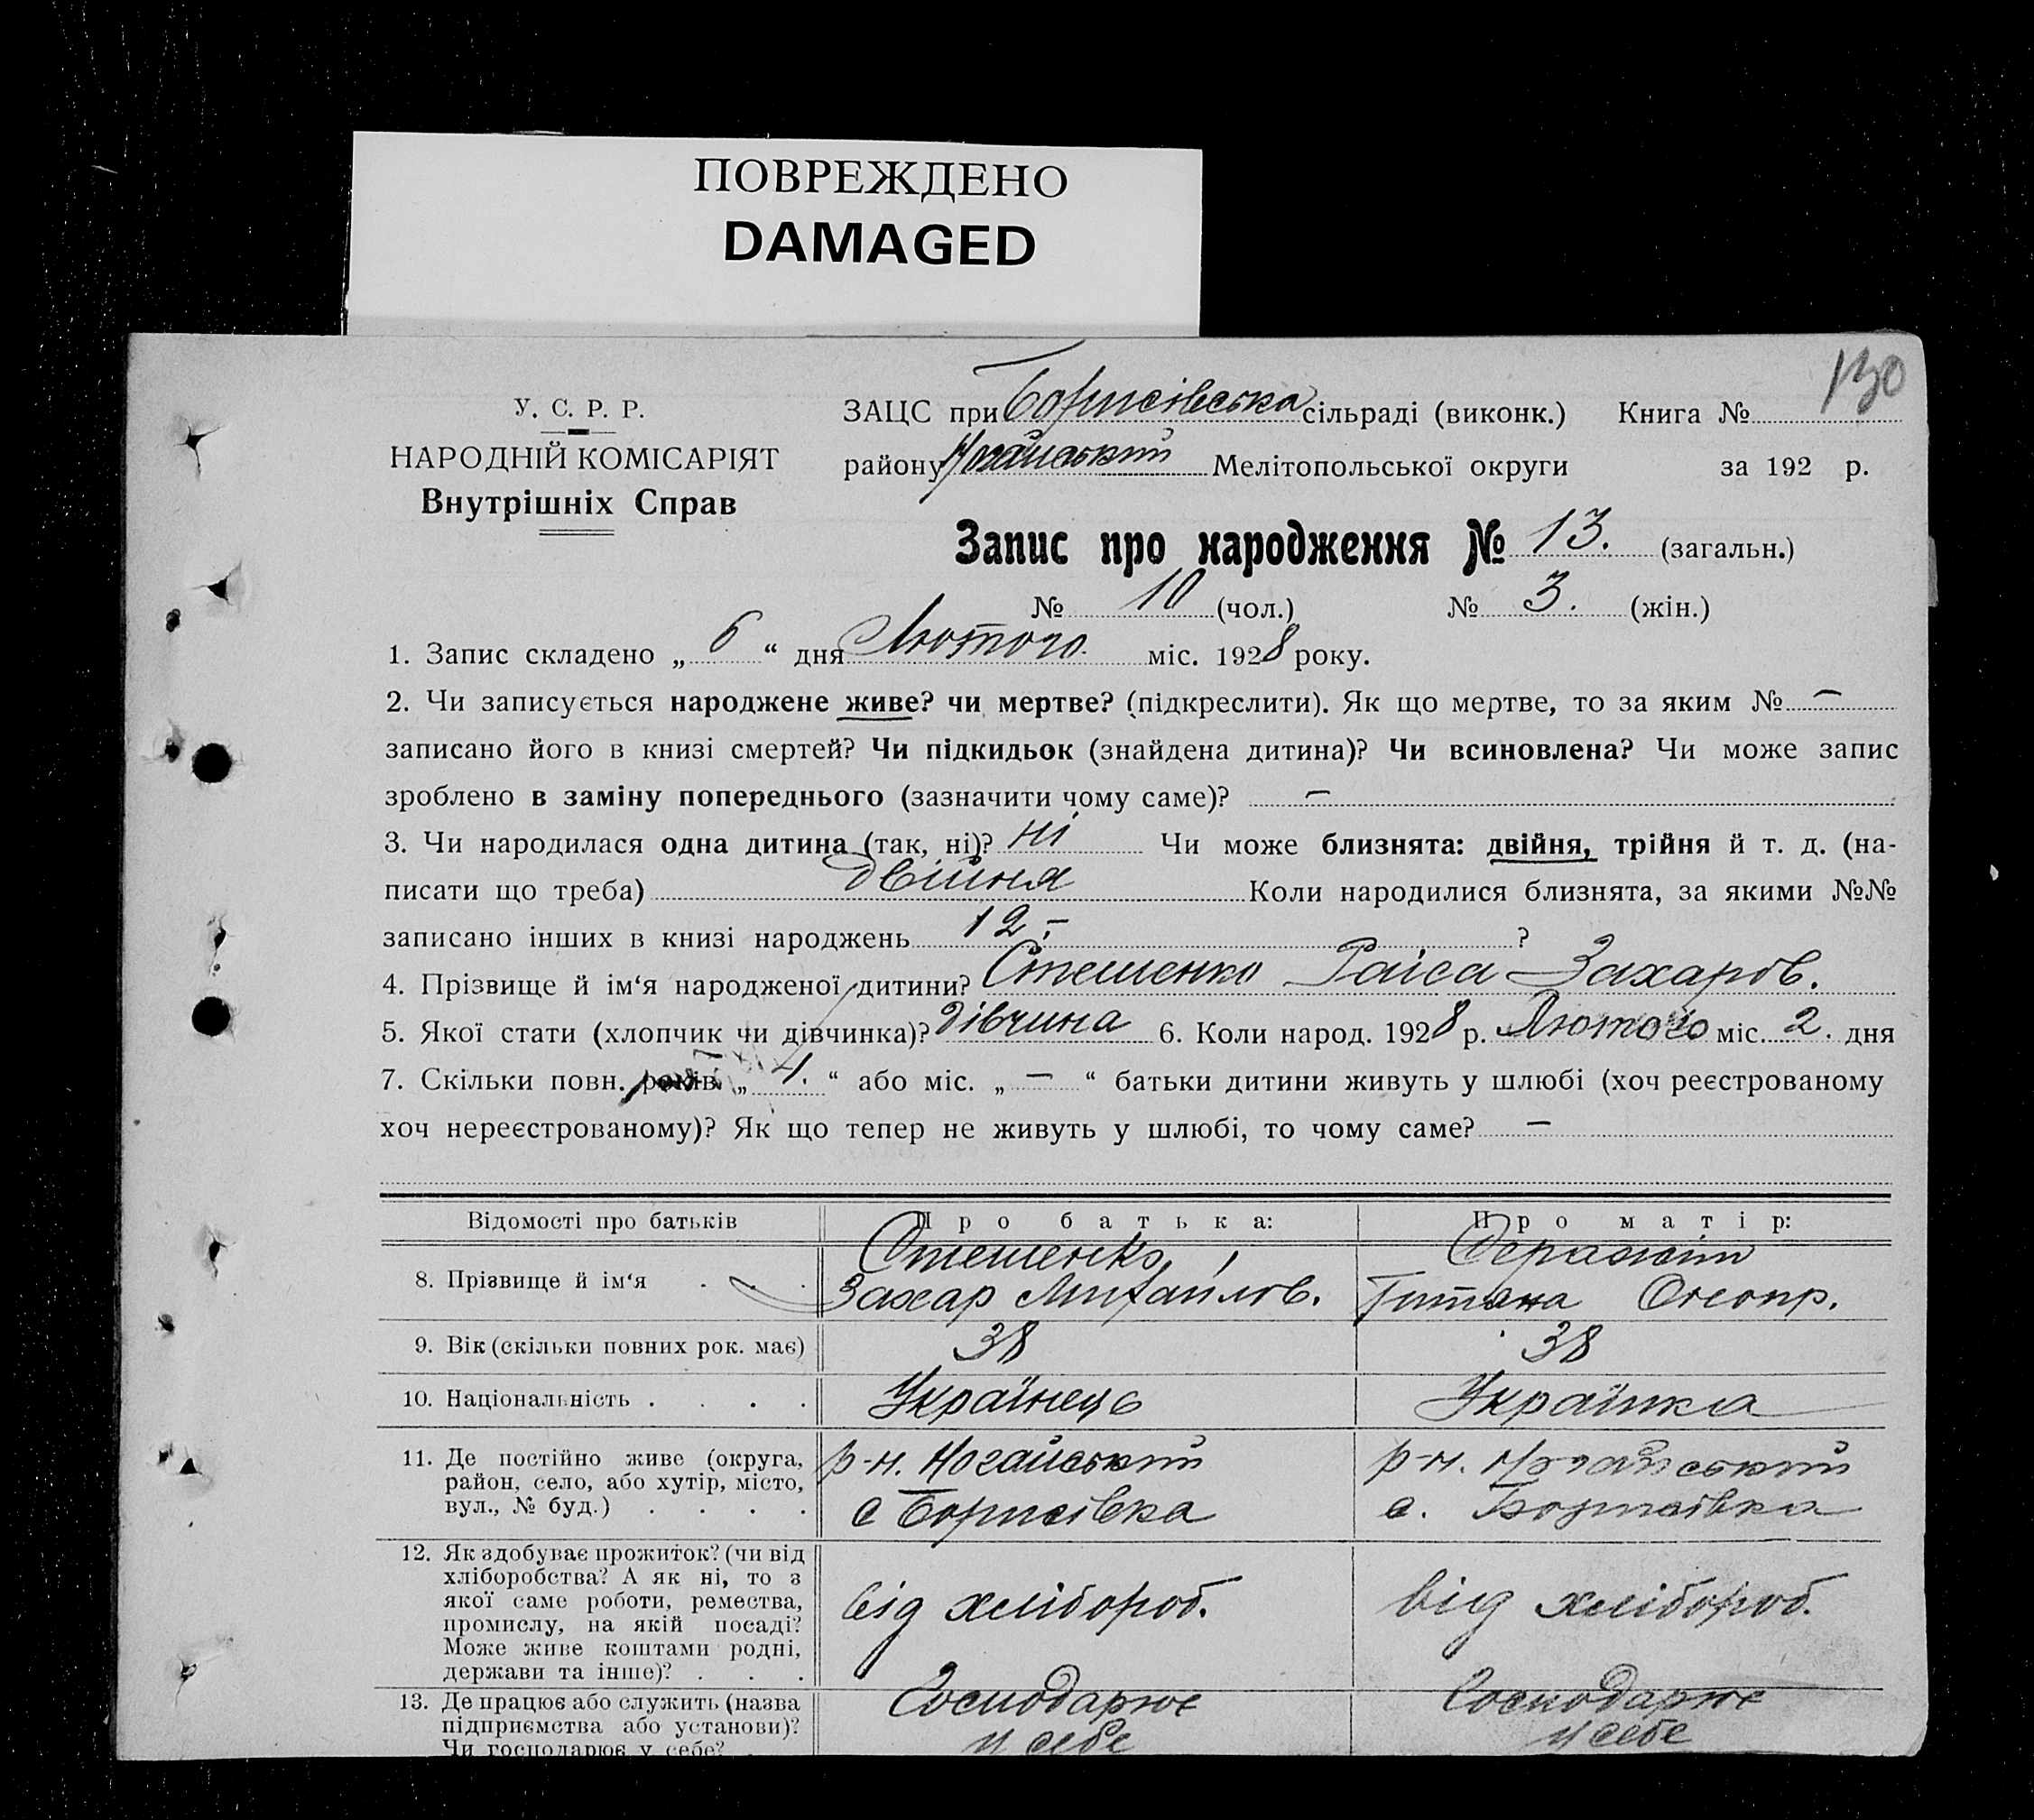 ПОВРЕЖДЕНО
DAMAGED
130
У. С. Р. Р.
НАРОДНІЙ КОМІСАРІЯТ
Внутрішніх Справ
ЗАЦС при Борисівська сільраді (виконк.) Книга №
району Ногайський Мелітопольської округи за 192 р.
Запис про народження № 13. (загальн.)
№ 10 (чол.) № 3. (жін.)
1. Запис складено „ 6 “ дня Лютого міс. 1928 року.
2. Чи записується народжене живе? чи мертве? (підкреслити). Як що мертве, то за яким № —
записано його в книзі смертей? Чи підкидьок (знайдена дитина)? Чи всиновлена? Чи може запис
зроблено в заміну попереднього (зазначити чому саме)? —
3. Чи народилася одна дитина (так, ні)? ні Чи може близнята: двійня, трійня й т. д. (на-
писати що треба) двійня Коли народилися близнята, за якими №№
записано інших в книзі народжень 12 — ?
4. Прізвище й ім‘я народженої дитини? Стешенко Раіса Захаров.
5. Якої стати (хлопчик чи дівчинка)? дівчина 6. Коли народ. 1928 р. Лютого міс. 2. дня
7. Скільки повн. років „ 4. “ або міс. „ — “ батьки дитини живуть у шлюбі (хоч реєстрованому
хоч нереєстрованому)? Як що тепер не живуть у шлюбі, то чому саме? —
Відомості про батьків Про батька: Про матір:
8. Прізвище й ім‘я . . . Стешенко
Захар Михайлов.
9. Вік (скільки повних рок. має) 38 38
10. Національність . . . . Українець Українка
11. Де постійно живе (округа,
район, село, або хутір, місто,
вул., № буд.) . . . .
р-н. Ногайський
с Борисівка
р-н. Ногайський
с. Борисівка
12. Як здобуває прожиток? (чи від
хліборобства? А як ні, то з
якої саме роботи, ремества,
промислу, на якій посаді?
Може живе коштами родні,
держави та інше)? . . .
від хлібороб.
від хлібороб.
13. Де працює або служить (назва
підприємства або установи)?
Чи господарює у себе? .
Господарює
у себе
Господарює
у себе